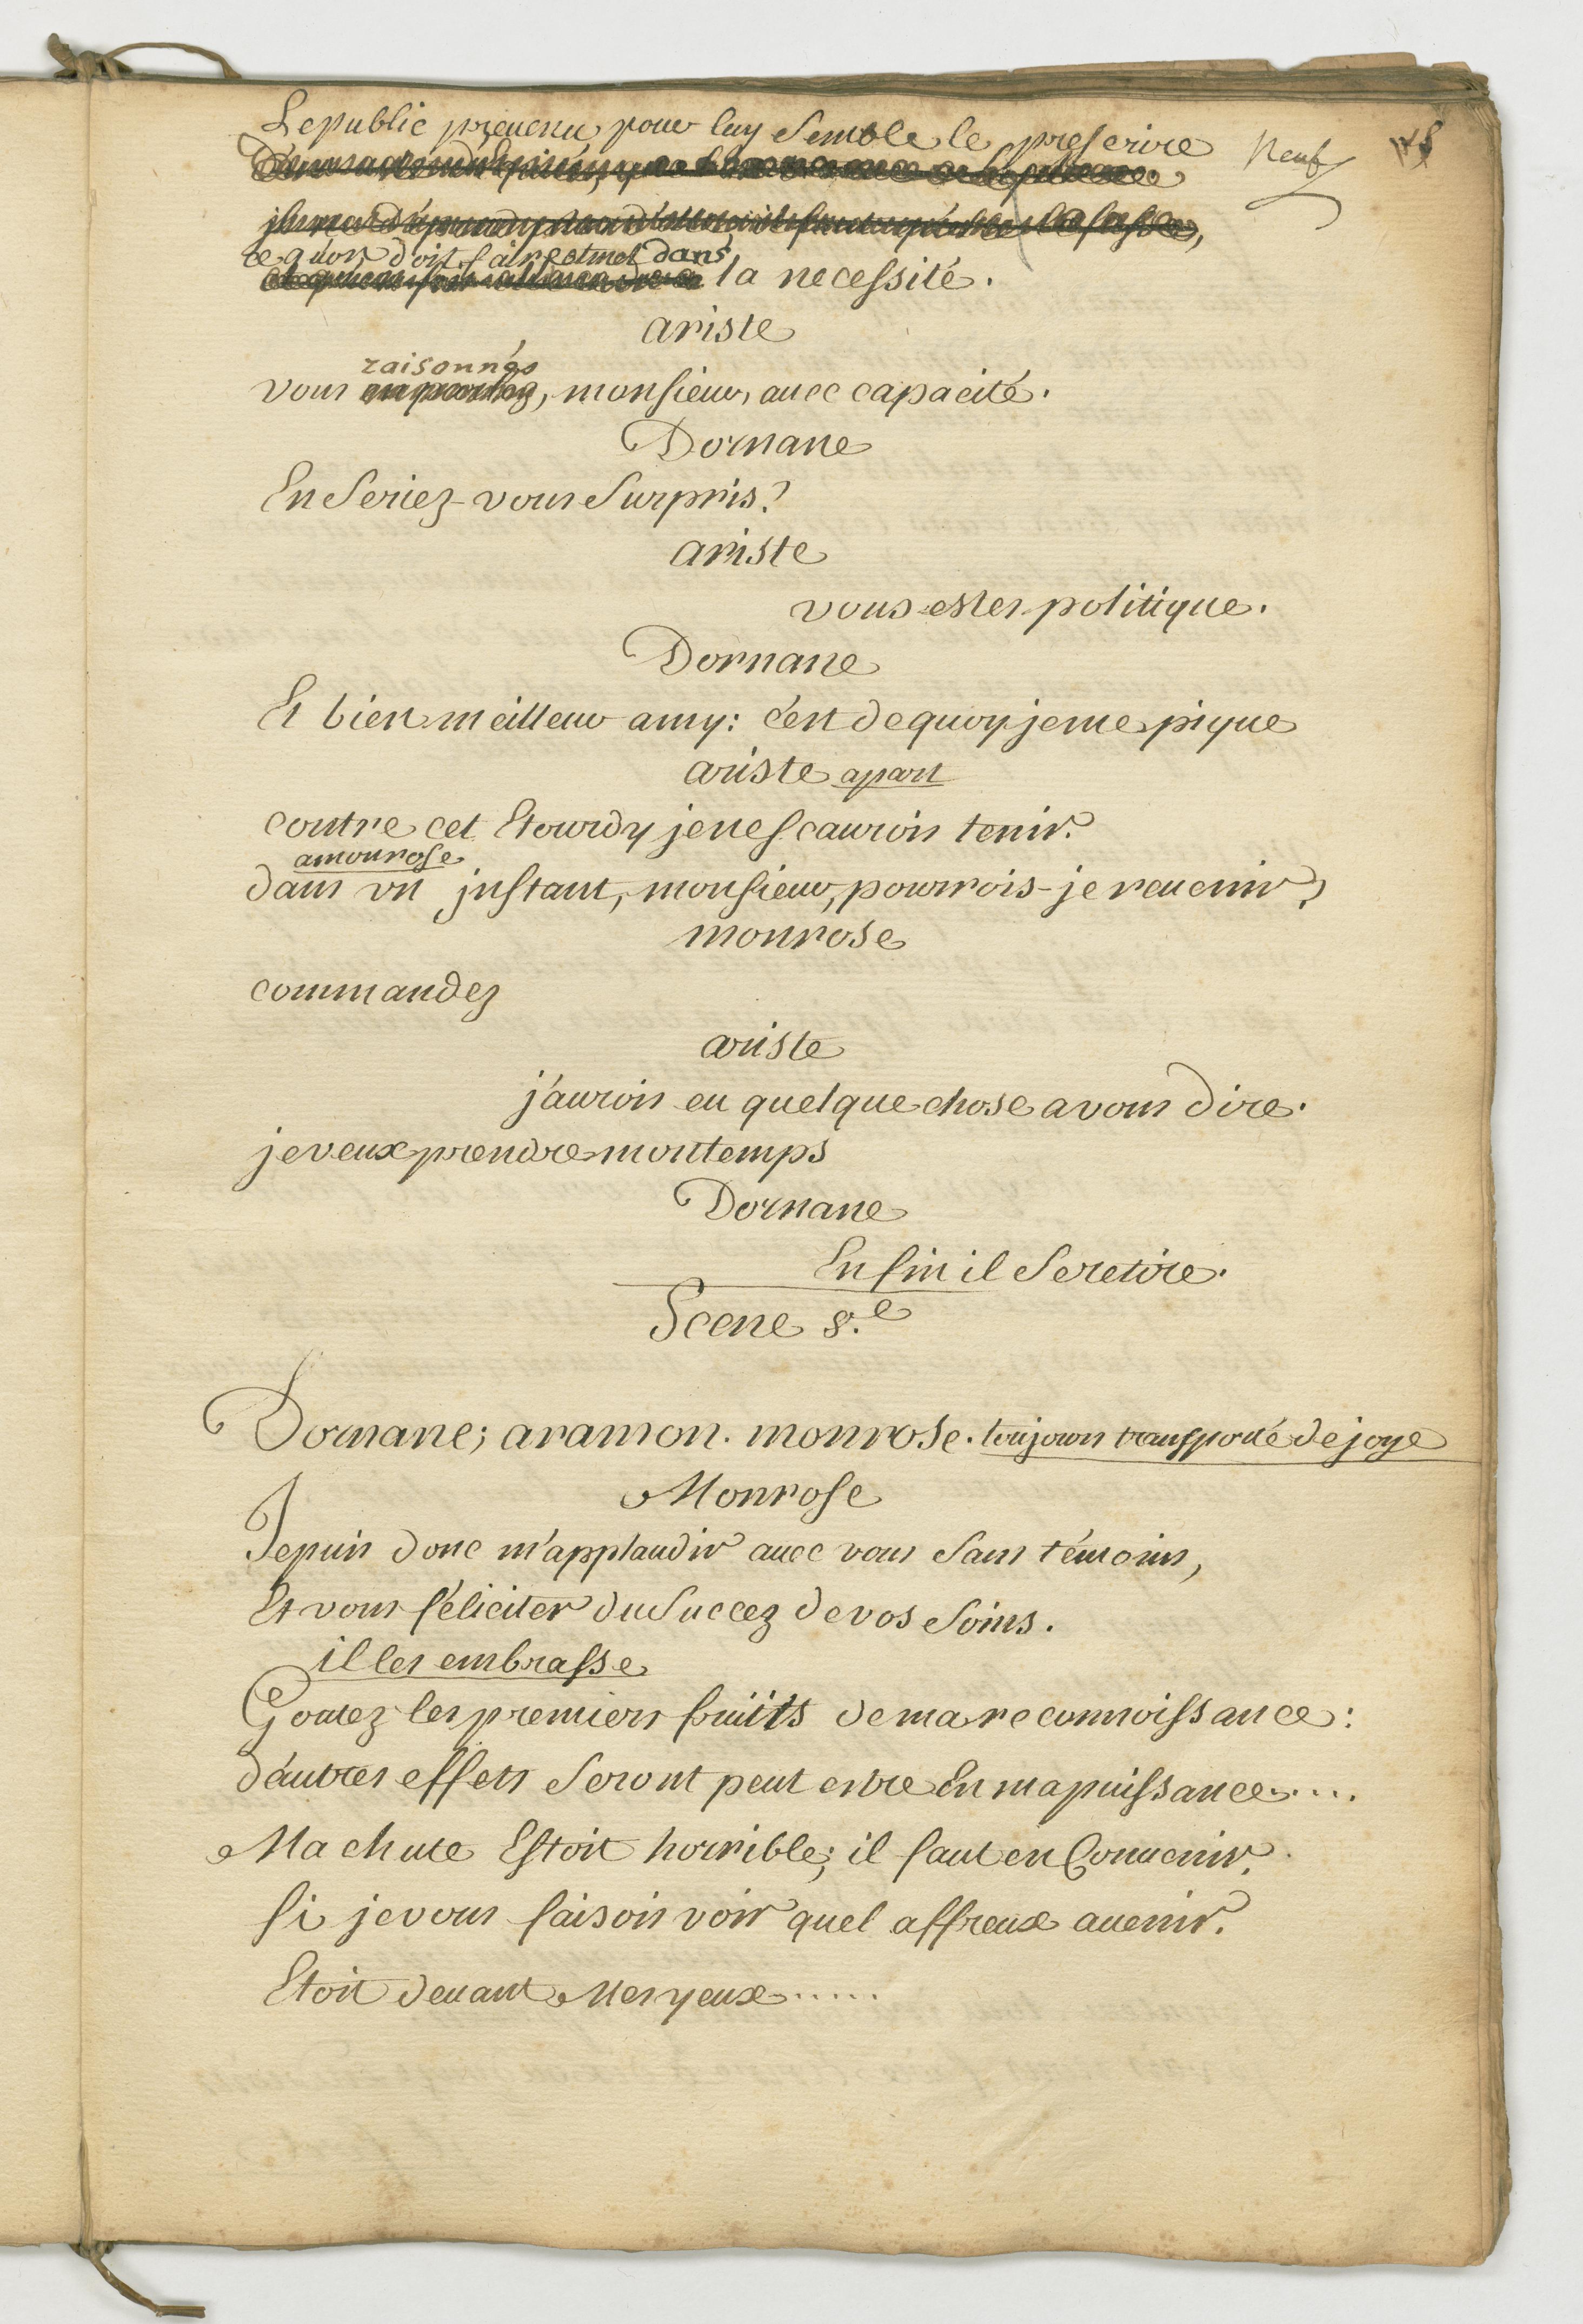 Le public prevenu pour luy Semble le prescrire
Neuf
ce qu'on doit faire et met dans la necessité.
ariste
raisonnés
vous, monsieur, avec capacité.
Dornane
En Seriez-vous Surpris?
ariste
vous estes politique.
Dornane
Et bien meilleur amy: c'est dequoy je me pique
ariste apart
contre cet Etourdy je ne scaurois tenir.
amonrose
dans vn jnstant, monsieur, pourrois-je revenir?
monrose
commandez
ariste
j'aurois eu quelque chose a vous dire.
je veux prendre mon temps
Dornane
Enfin il Se retire.
Scene 8.e
Dornane; aramon. monrose. toujours transporté de joye
Monrose
Je puis donc m'applaudir avec vous Sans témoins,
Et vous féliciter du Succez de vos Soins.
il les embrasse
Goutez les premiers fruits de ma reconnoissance:
d'autres effets Seront peut estre En ma puissance.....
Ma chute Estoit horrible; il faut en Convenir.
Si je vous faisois voir quel affreux avenir.
Etoit devant Mes yeux.....